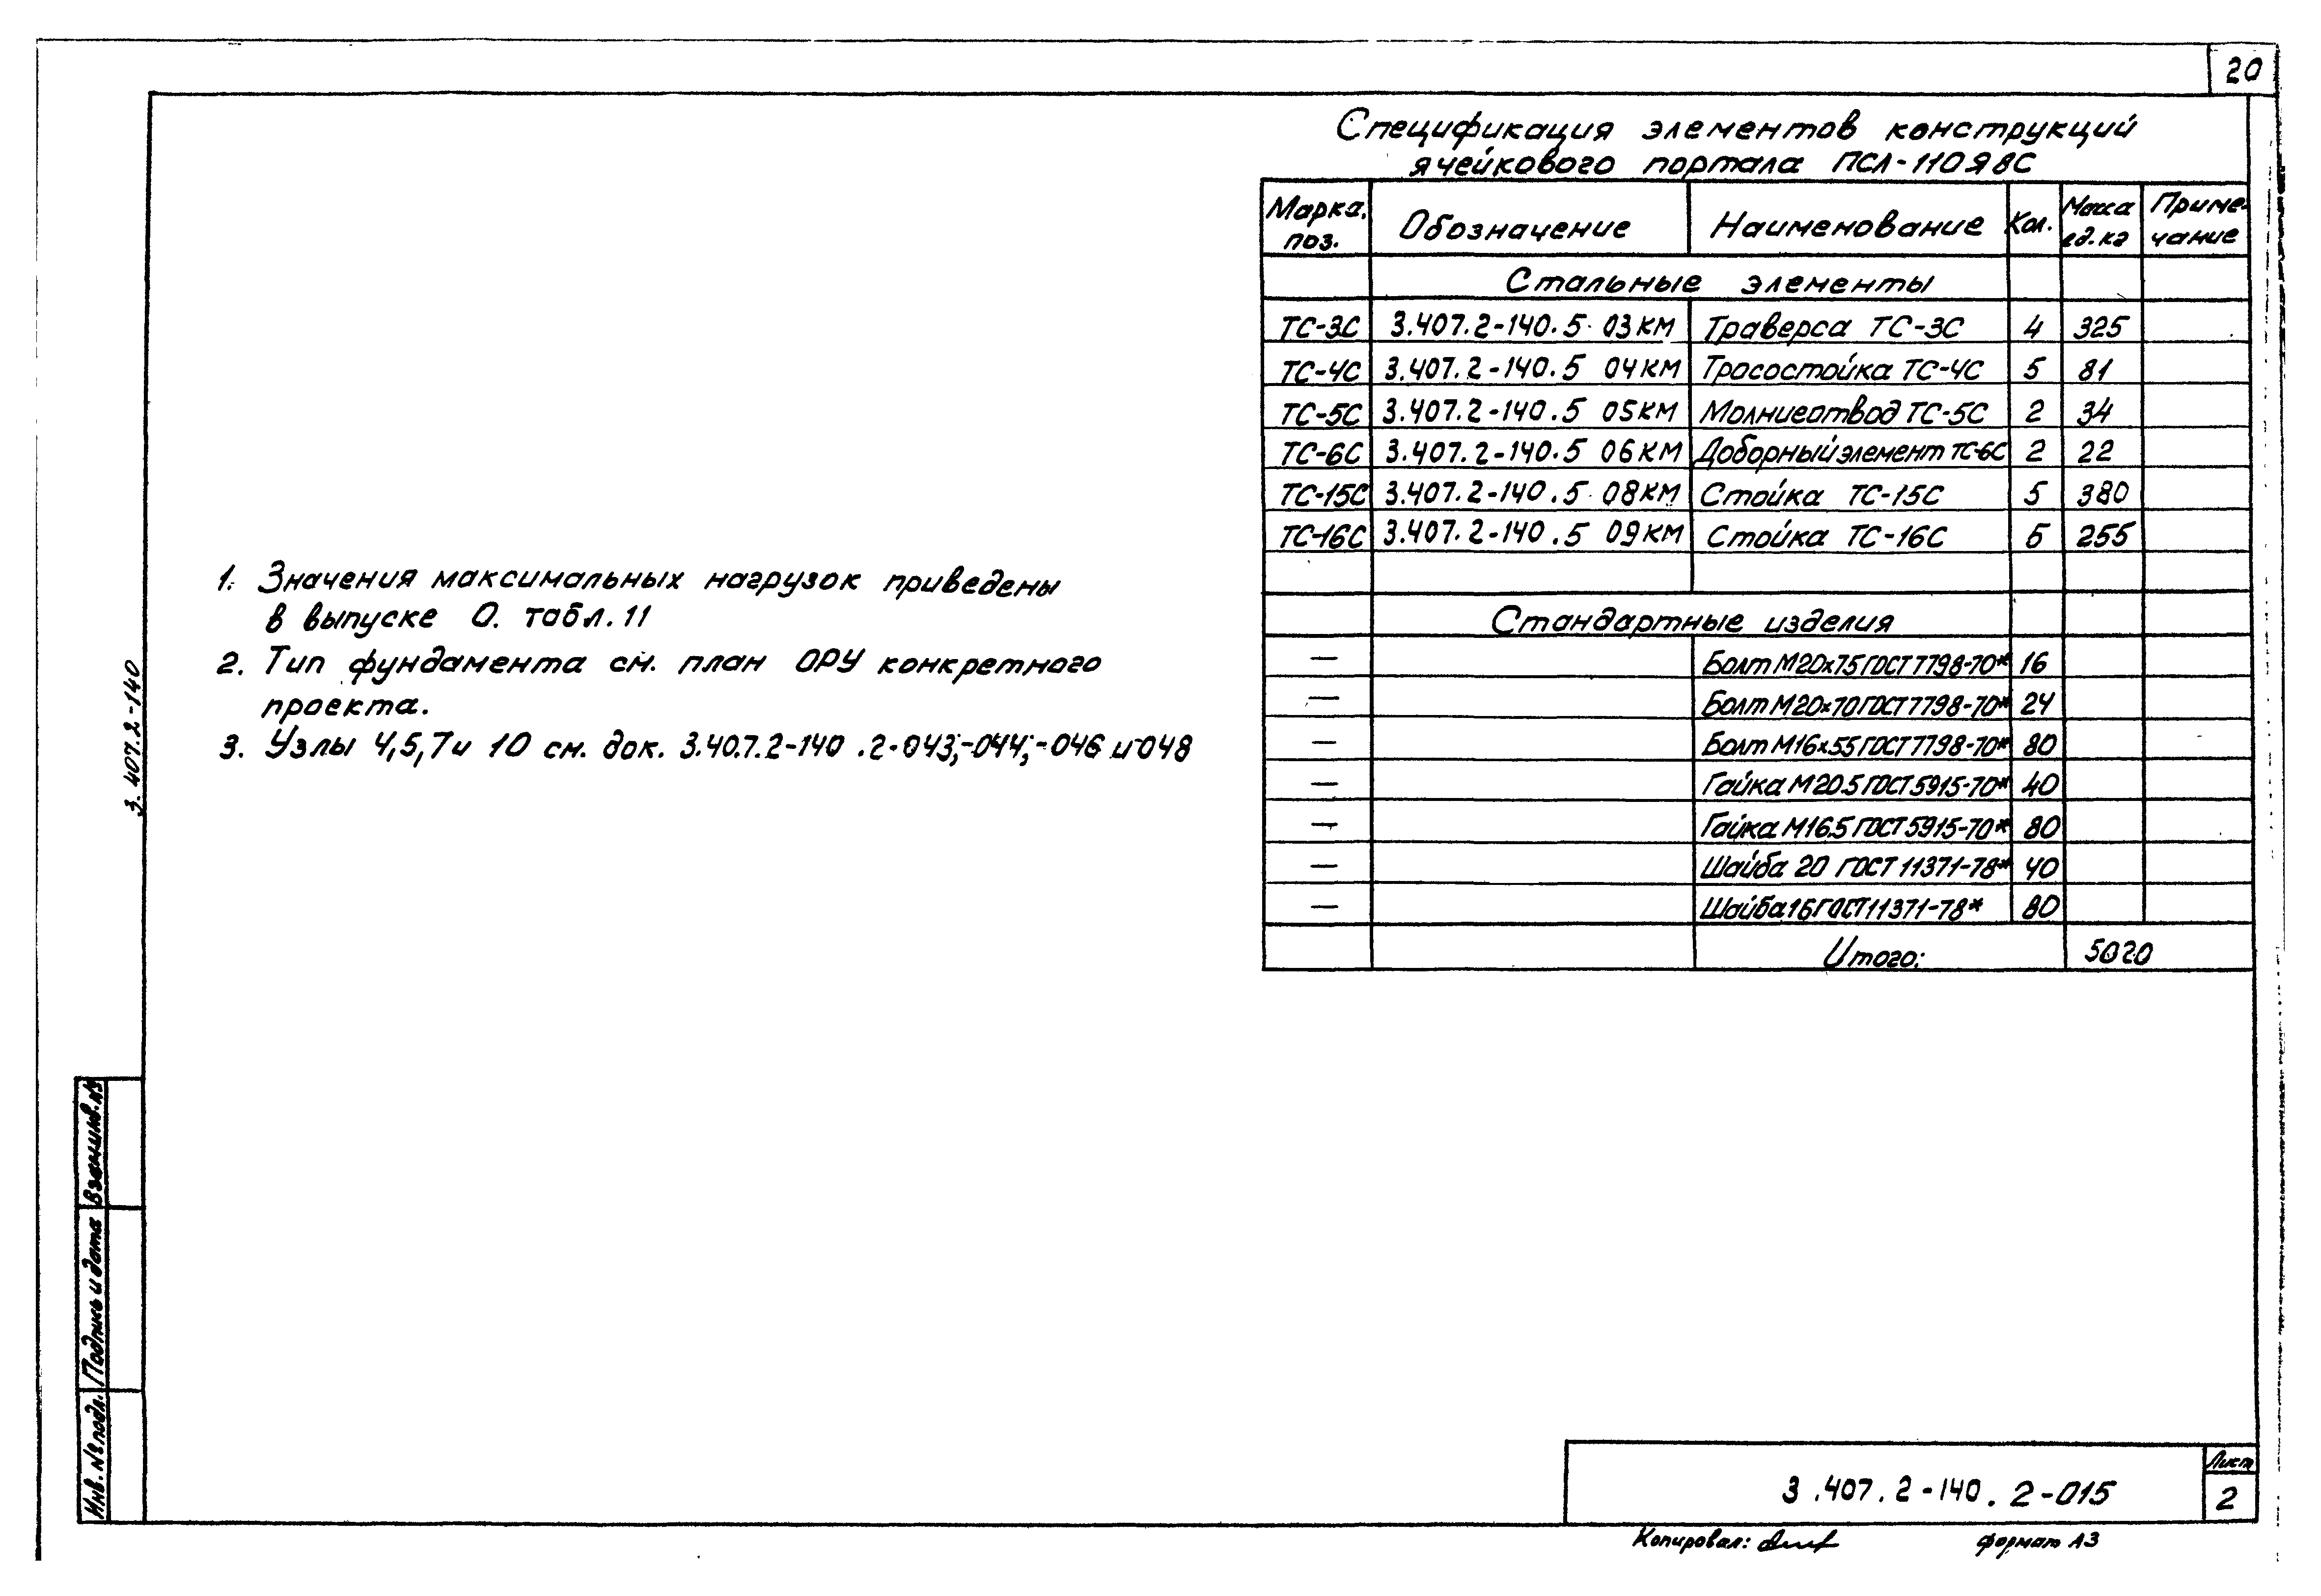 20
Спецификация элементов конструкций
ячейкового портала ПСЛ-110Я8С
Марка, поз. Обозначение Наименование Кол. Масса ед. кг Приме-чание
Стальные элементы
ТС-3С 3.407.2-140.5 03КМ Траверса ТС-3С 4 325
ТС-4С 3.407.2-140.5 04КМ Тросостойка ТС-4С 5 81
ТС-5С 3.407.2-140.5 05КМ Молниеотвод ТС-5С 2 34
ТС-6С 3.407.2-140.5 06КМ Доборный элемент ТС-6С 2 22
ТС-15С 3.407.2-140.5 08КМ Стойка ТС-15С 5 380
ТС-16С 3.407.2-140.5 09КМ Стойка ТС-16С 5 255
Стандартные изделия
— Болт М20х75 ГОСТ 7798-70* 16
— Болт М20х70 ГОСТ 7798-70* 24
— Болт М16х55 ГОСТ 7798-70* 80
— Гайка М20.5 ГОСТ 5915-70* 40
— Гайка М16.5 ГОСТ 5915-70* 80
— Шайба 20 ГОСТ 11371-78* 40
— Шайба 16 ГОСТ 11371-78* 80
Итого: 5020
1. Значения максимальных нагрузок приведены
в выпуске 0. табл. 11
2. Тип фундамента см. план ОРУ конкретного
проекта.
3. Узлы 4,5,7 и 10 см. док. 3.407.2-140.2-043; -044; -046 и -048
3.407.2-140
Взам.инв.№
Подпись и дата
Инв. № подл.
3.407.2-140.2-015
Лист
2
Копировал:
формат А3